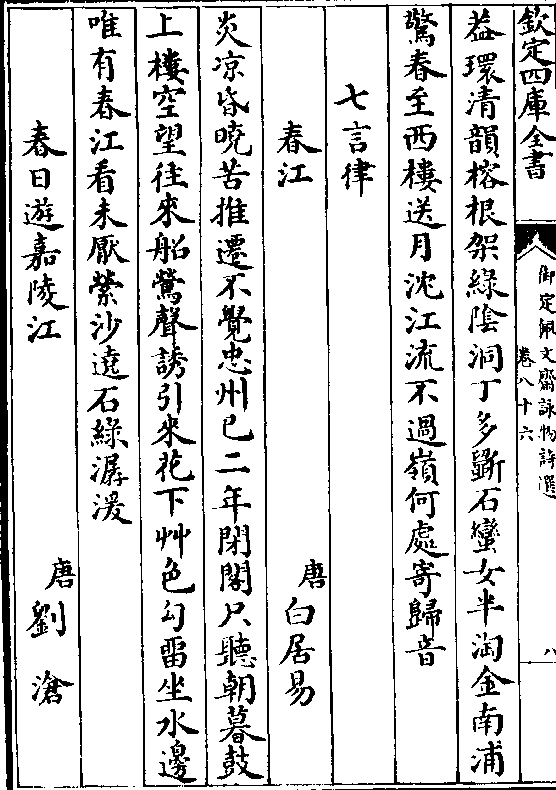 欽定四庫全書
御定佩文齋詠物詩選
卷八十六
八
益環清韻榕根架綠陰洞丁多斵石蠻女半淘金南浦
驚春至西樓送月沈江流不過嶺何處寄歸音
七言律
春江
唐白居易
炎凉昏曉苦推遷不覺忠州已二年閉閣只聽朝暮鼓
上樓空望往來船鶯聲誘引來花下艸色勾留坐水邊
唯有春江看未厭縈沙遶石綠潺湲
春日遊嘉陵江
唐劉滄